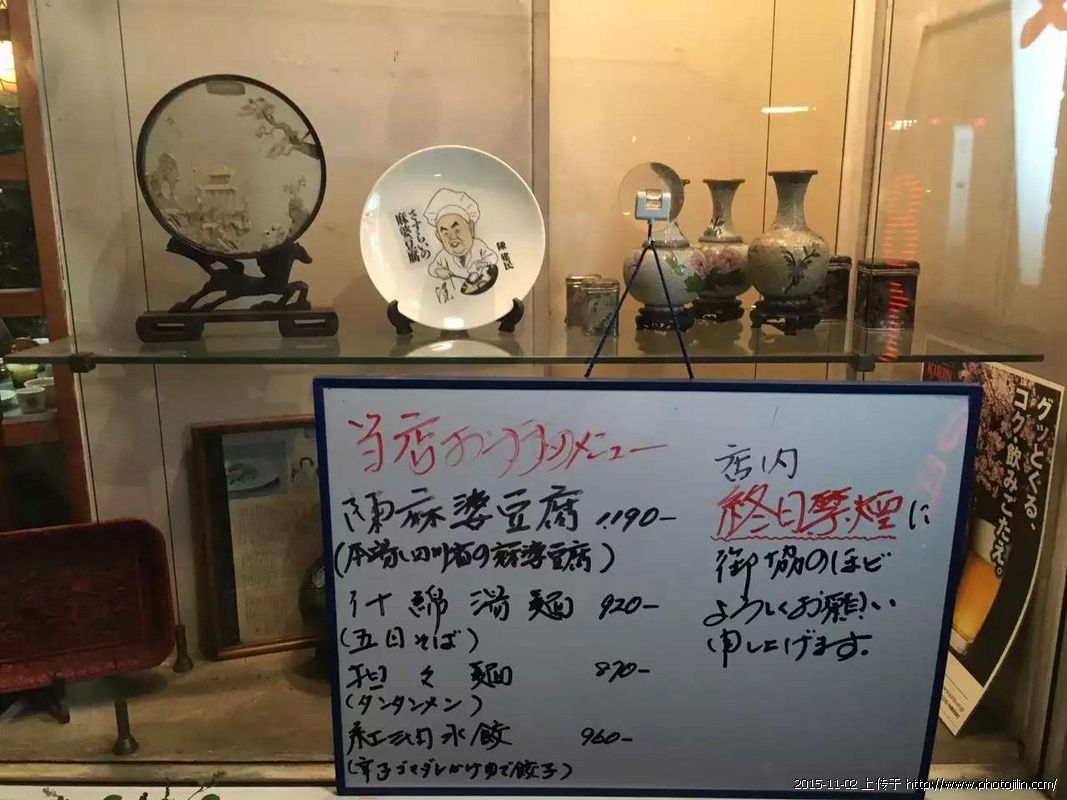 さすらいの
麻婆豆腐
陳建民
KIRIN
グッとくる、
コク・飲みごたえ。
当店おすすめメニュー
陳麻婆豆腐 1190-
(本場四川省の麻婆豆腐)
什錦湯麺 920-
(五目そば)
担々麺 870-
(タンタンメン)
紅油水餃 960-
(辛子ゴマダレかけゆで餃子)
店内
終日禁煙に
御協のほど
よろしくお願い
申し上げます。
2015-11-02 上传于 http://www.photojilin.com/